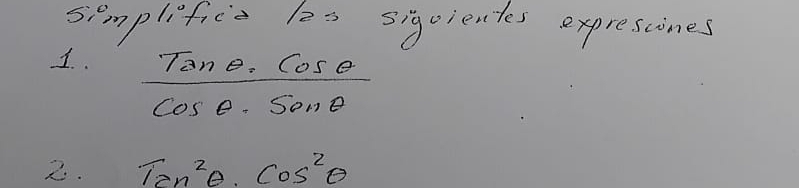 Simplifica las siguientes expresiones
1. Tan θ. Cos θ
Cos θ. Sen θ
2. Tan²θ. Cos²θ